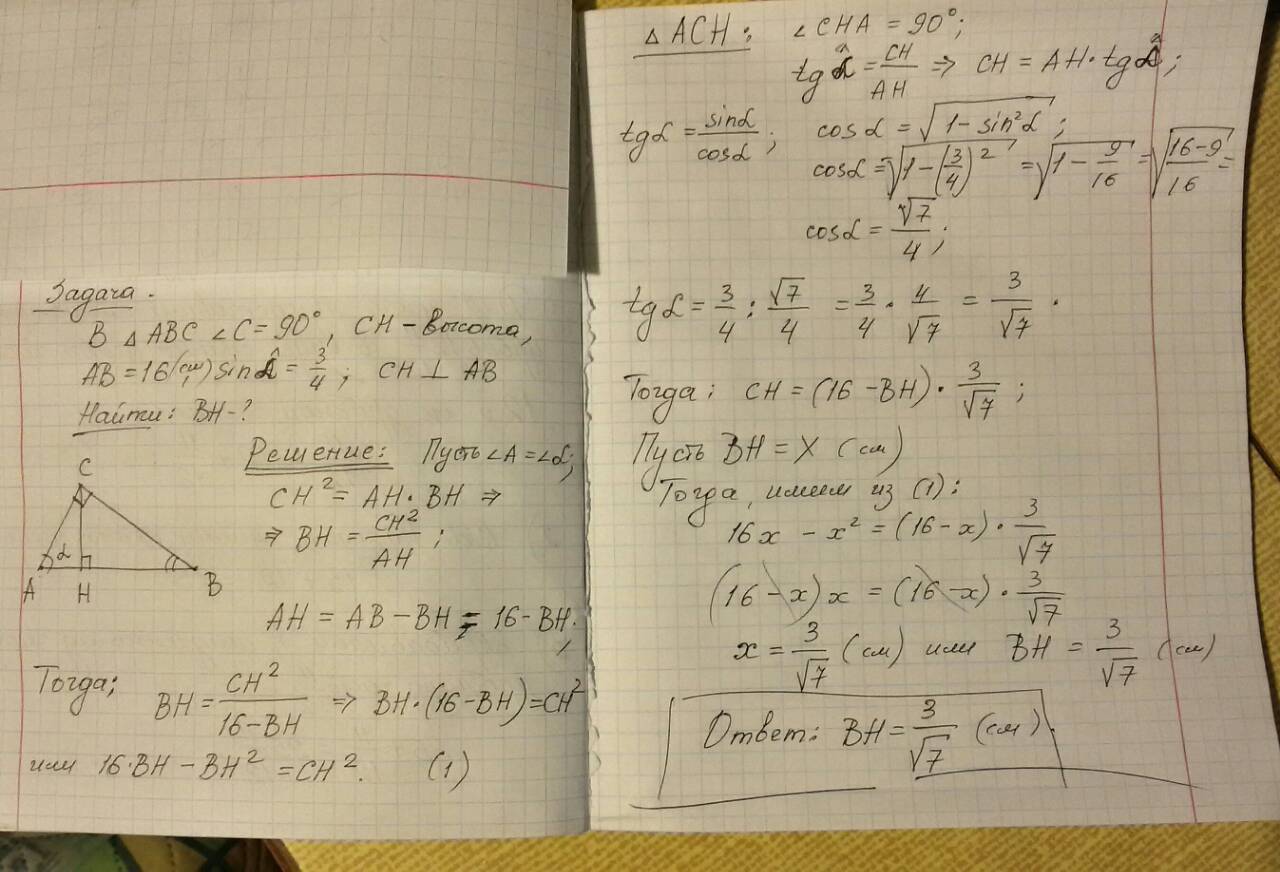 Задача.
В △ ABC ∠C = 90°, CH – высота,
AB = 16 (см) sin Â = 3/4 ; CH ⊥ AB
Найти: BH - ?
Решение: Пусть ∠A = ∠α;
CH² = AH · BH ⇒
⇒ BH = CH²/AH ;
C
α
A H B
AH = AB – BH = 16 - BH;
Тогда; BH = CH²/(16-BH) ⇒ BH·(16-BH)=CH²
или 16·BH – BH² = CH². (1)
△ ACH: ∠CHA = 90°;
tg Â = CH/AH ⇒ CH = AH · tg Â;
tg α = sin α/cos α; cos α = √(1 – sin² α);
cos α = √(1-(3/4)²) = √(1 - 9/16) = √((16-9)/16) =
cos α = √7/4;
tg α = 3/4 : √7/4 = 3/4 · 4/√7 = 3/√7 .
Тогда: CH = (16 – BH) · 3/√7 ;
Пусть BH = X (см)
Тогда, имеем из (1):
16x – x² = (16 – x) · 3/√7
(16 – x)x = (16 – x) · 3/√7
x = 3/√7 (см) или BH = 3/√7 (см)
Ответ: BH = 3/√7 (см).